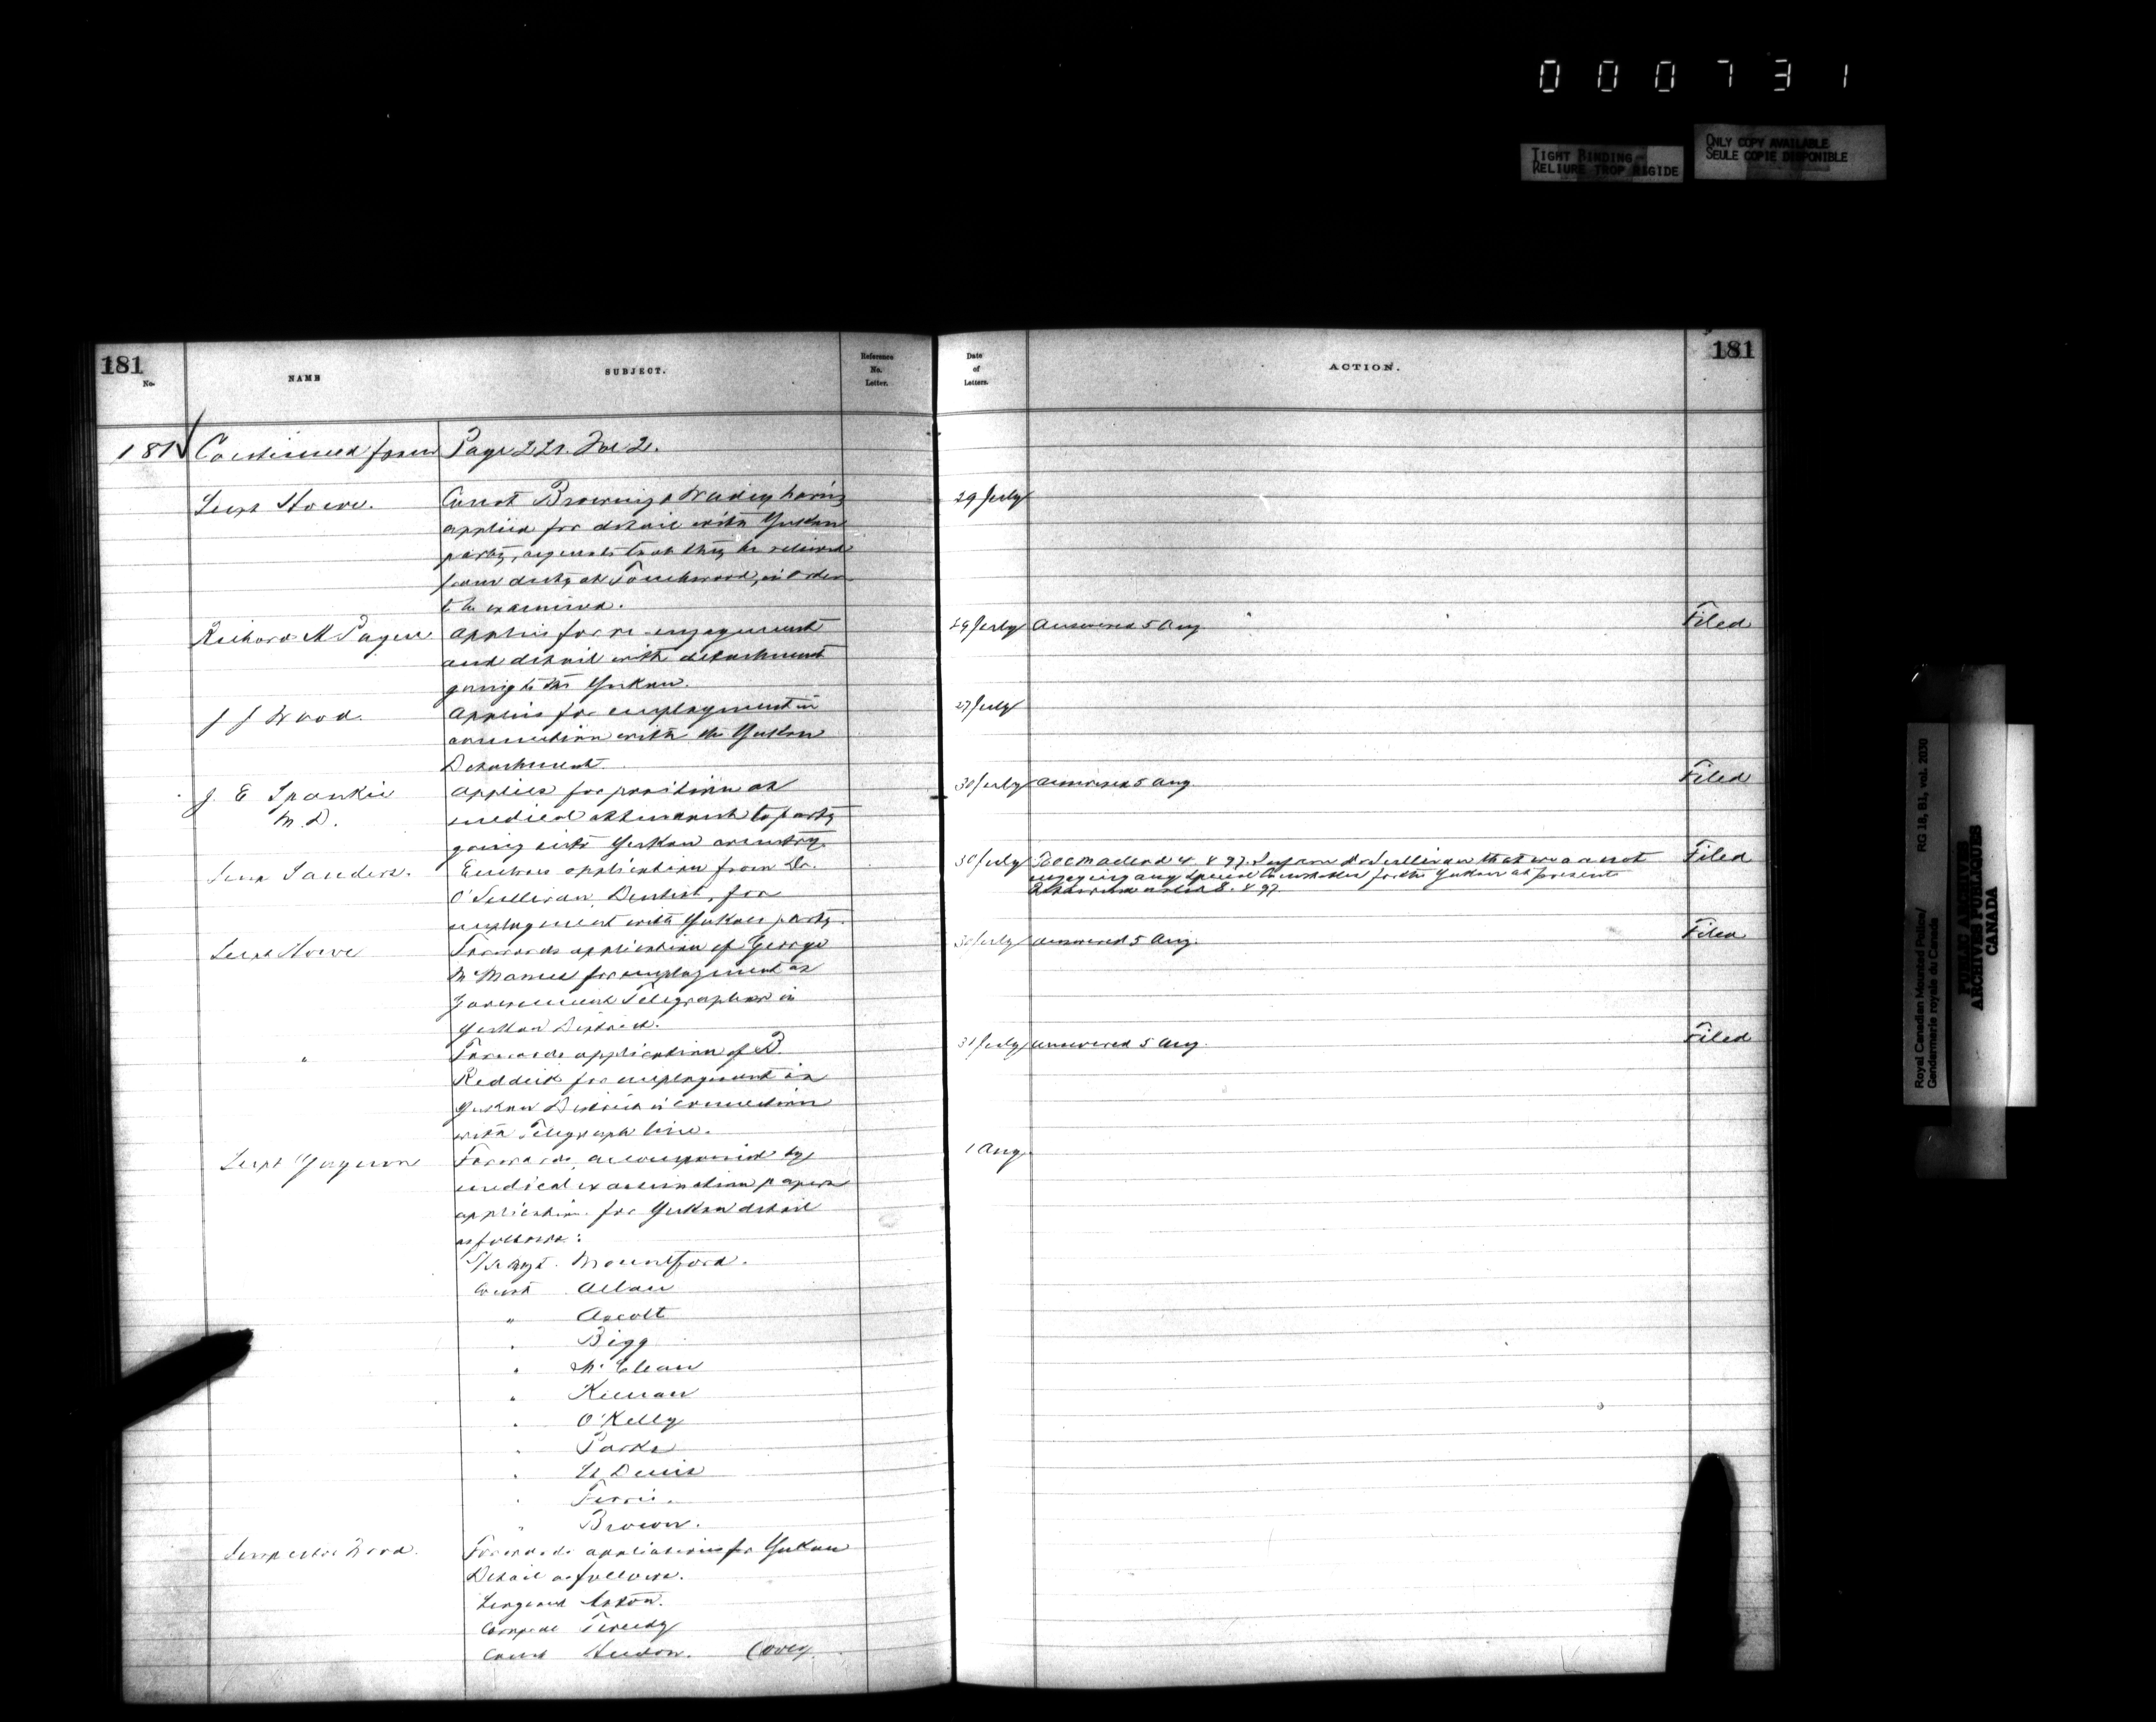 000731
TIGHT BINDING
RELIURE TROP RIGIDE
ONLY COPY AVAILABLE
SEULE COPIE DISPONIBLE
181
No.
NAME
SUBJECT.
Reference
No.
Letter.
Date
of
Letters.
ACTION.
181
181 Continued from Page 221. Vol 2.
Supt Howe. Const Browning & having 29 July
applied for detail with Yukon
party, requests that they be relieved
from duty at Touchwood, in order
to be examined.
Richard M Payen Applies for re-engagement 29 July Answered 5 Aug Filed
and detail with detachment
going to the Yukon.
J J Wood. Applies for employment in 27 July
connection with the Yukon
Detachment.
J. E Spankie Applies for position as 30 July Answered 5 Aug. Filed
M.D. medical attendant to party
going into Yukon country.
Supt Sanders. Encloses application from Dr. 30 July Macleod 4. 8 97. Inform Dr Sullivan that we are not Filed
engaging any special for the Yukon at present
8. 8 97
O'Sullivan, Dentist, for
employment with Yukon party.
Supt Howe Forwards application of George 30 July Answered 5 Aug. Filed
McManus for employment as
Government Telegrapher in
Yukon District.
" Forwards application of D. 31 July Answered 5 Aug. Filed
Reddick for employment in
Yukon District in connection
with Telegraph line.
Supt Gagnon Forwards, accompanied by 1 Aug
medical examination papers
application for Yukon detail
as follows:
S/Sergt. Mountford.
Const Allan
" Ascott
" Bigg
" McClean
" Keenan
" O'Kelly
" Parke
" St Denis
" Ferris.
" Brown.
Inspector Wood. Forwards applications for Yukon
Detail as follows.
Sergeant
Corporal Tweedy
Const Hudon. (over)
Royal Canadian Mounted Police/
Gendarmerie royale du Canada
RG 18, B1, vol. 2030
PUBLIC ARCHIVES
ARCHIVES PUBLIQUES
CANADA